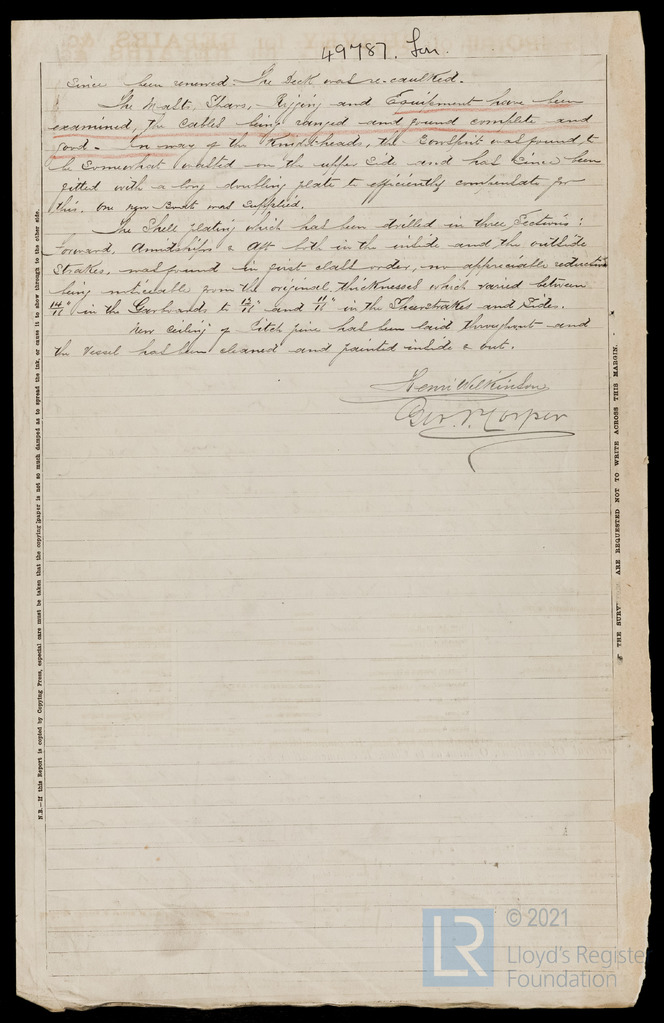 49787. Lon.
since been renewed. The Deck was re-caulked.
The Masts, Spars, Rigging and Equipment have been
examined, the Cables being ranged and found complete and
good. In way of the Knightheads, the Bowsprit was found to
be somewhat wasted on the upper side and has since been
fitted with a long doubling plate to efficiently compensate for
this. One new Boat was supplied.
The Shell plating which has been drilled in three sections:
Forward, Amidships & Aft both in the inside and the outside
Strakes, was found in first class order, no appreciable reduction
being noticeable from the original thicknesses which varied between
14/16" in the Garboards to 12/16" and 11/16" in the Sheerstrakes and Sides.
New ceiling of Pitch pine has been laid throughout and
the vessel has been cleaned and painted inside & out.
Henri Wilkinson
Geo.
N.B.—If this Report is copied by Copying Press, especial care must be taken that the copying paper is not so much damped as to spread the ink, or cause it to show through to the other side.
THE SURV ARE REQUESTED NOT TO WRITE ACROSS THIS MARGIN.
LR
© 2021
Lloyd's Register
Foundation